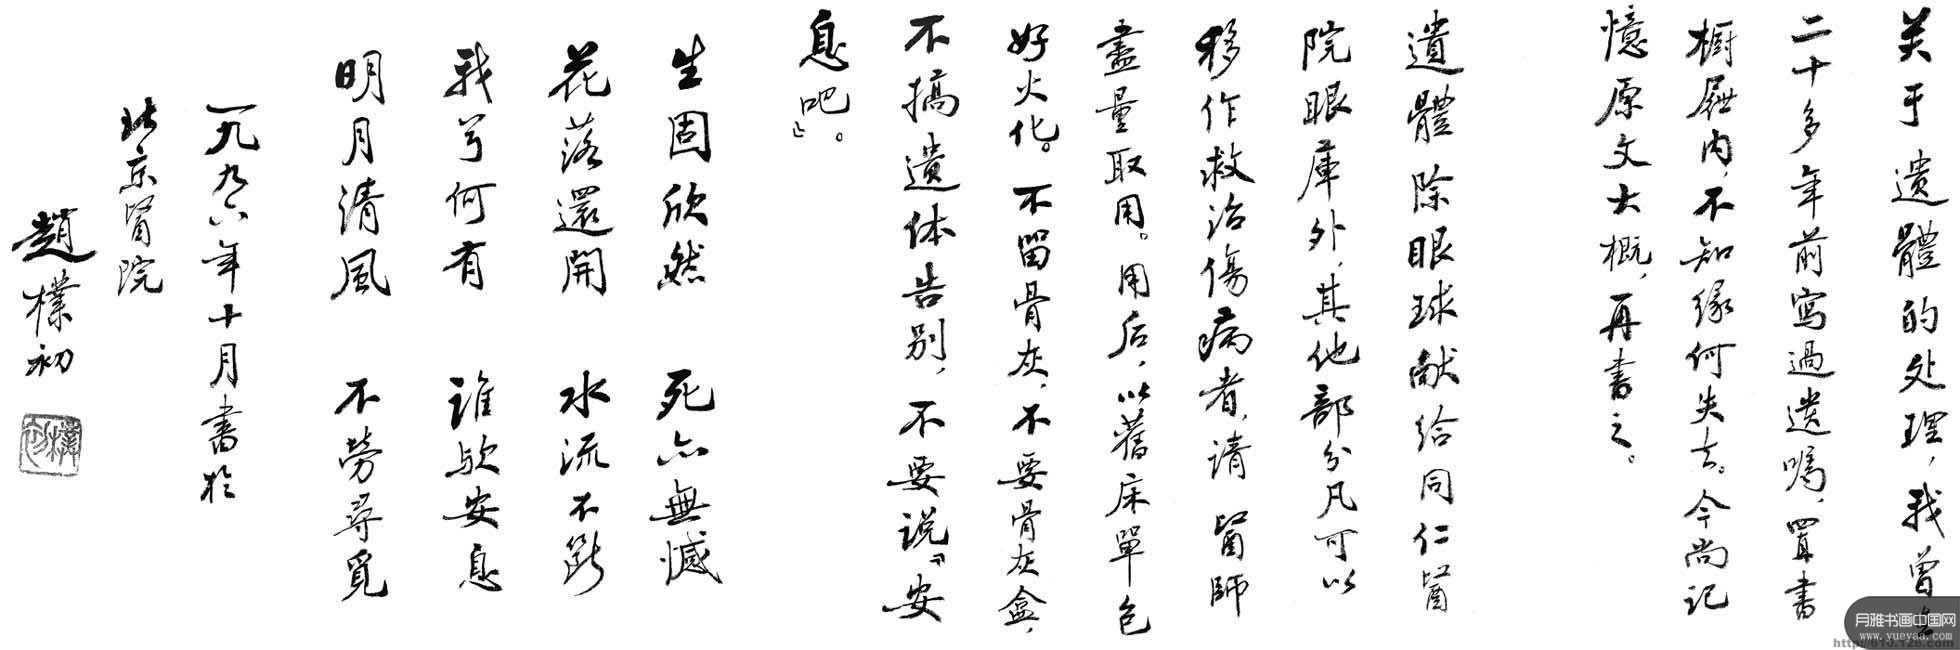 关于遗體的处理，我曾在
二十多年前寫過遗嘱，置書
橱屜内，不知缘何失去。今尚记
憶原文大概，再書之。
遺體除眼球献给同仁醫
院眼庫外，其他部分凡可以
移作救治傷病者，请醫師
盡量取用。用后，以舊床單包
好火化。不留骨灰，不要骨灰盒，
不搞遺体告别，不要说『安
息吧』。
生固欣然 死亦無憾
花落還開 水流不断
我兮何有 誰欤安息
明月清風 不勞尋覓
一九九六年十月書於
北京醫院
趙樸初
月雅书画中国网
www.yueyaa.com